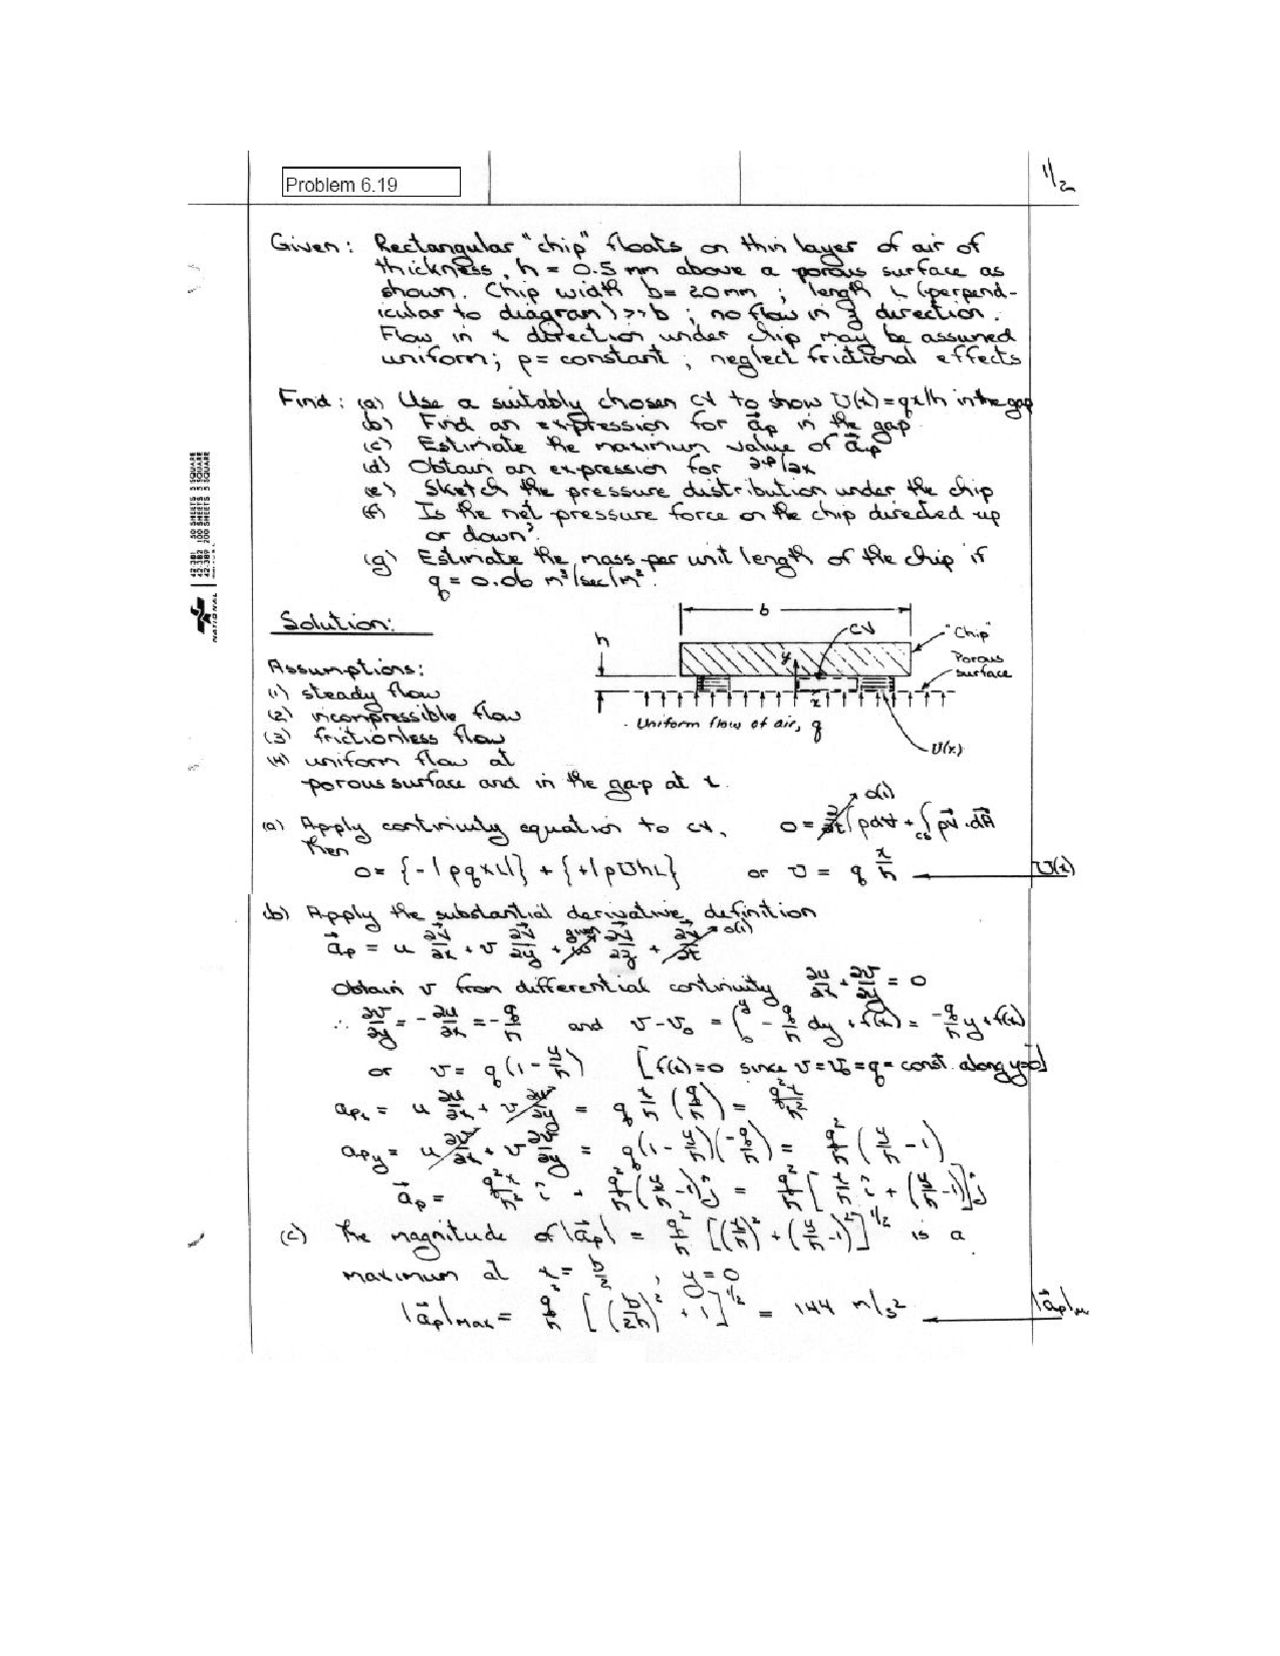 Problem 6.19
1/2
Given: Rectangular "chip" floats on thin layer of air of
thickness, h = 0.5 mm above a porous surface as
shown. Chip width b = 20 mm ; length L (perpend-
icular to diagram) >> b ; no flow in z direction.
Flow in x direction under chip may be assumed
uniform; ρ = constant ; neglect frictional effects
Find: (a) Use a suitably chosen CV to show U(x) = qx/h in the gap
(b) Find an expression for a⃗p in the gap
(c) Estimate the maximum value of a⃗p
(d) Obtain an expression for ∂p/∂x
(e) Sketch the pressure distribution under the chip
(f) Is the net pressure force on the chip directed up
or down?
(g) Estimate the mass per unit length of the chip if
q = 0.06 m³/sec/m².
42-381 50 SHEETS 5 SQUARE
42-382 100 SHEETS 5 SQUARE
42-389 200 SHEETS 5 SQUARE
NATIONAL
Solution:
b
h
CV
"Chip"
y
Porous
surface
x
Uniform flow of air, q
U(x)
Assumptions:
(1) steady flow
(2) incompressible flow
(3) frictionless flow
(4) uniform flow at
porous surface and in the gap at x.
(a) Apply continuity equation to CV. 0 = ∂/∂t ∫ ρ dV + ∫cs ρV⃗ · dA⃗
= 0(1)
Then
0 = {-|ρqxL|} + {+|ρUhL|} or U = q x/h U(x)
(b) Apply the substantial derivative definition
a⃗p = u ∂V⃗/∂x + v ∂V⃗/∂y + w ∂V⃗/∂z + ∂V⃗/∂t = 0(1)
Obtain v from differential continuity ∂u/∂x + ∂v/∂y = 0
∴ ∂v/∂y = - ∂u/∂x = - q/h and v - v₀ = ∫₀^y - q/h dy + f(x) = -q/h y + f(x)
or v = q(1 - y/h) [f(x) = 0 since v = v₀ = q = const. along y=0]
apx = u ∂u/∂x + v ∂u/∂y = q x/h (q/h) = q²x/h²
apy = u ∂v/∂x + v ∂v/∂y = q(1 - y/h)(-q/h) = q²/h (y/h - 1)
a⃗p = q²x/h² î + q²/h (y/h - 1) ĵ = q²/h [x/h î + (y/h - 1) ĵ]
(c) The magnitude of |a⃗p| = q²/h [(x/h)² + (y/h - 1)²]^1/2 is a
maximum at x = b/2 , y = 0
|a⃗p|max = q²/h [(b/2h)² + 1]^1/2 = 144 m/s² |a⃗p|m